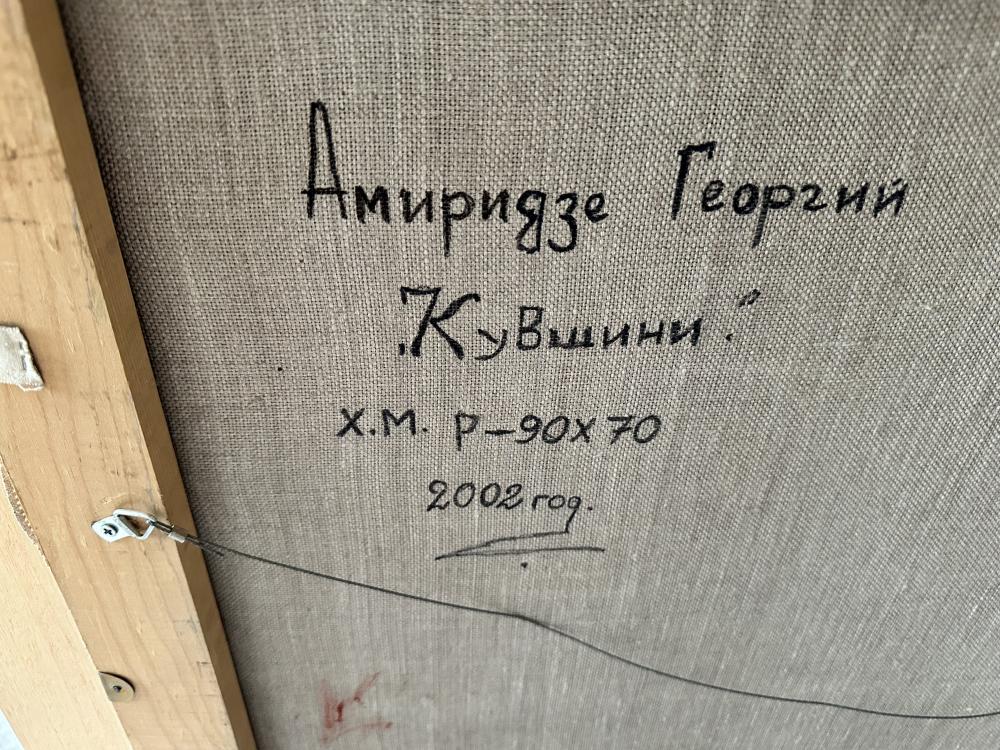 Амиридзе Георгий
„Кувшини."
Х.М. Р-90х70
2002 год.